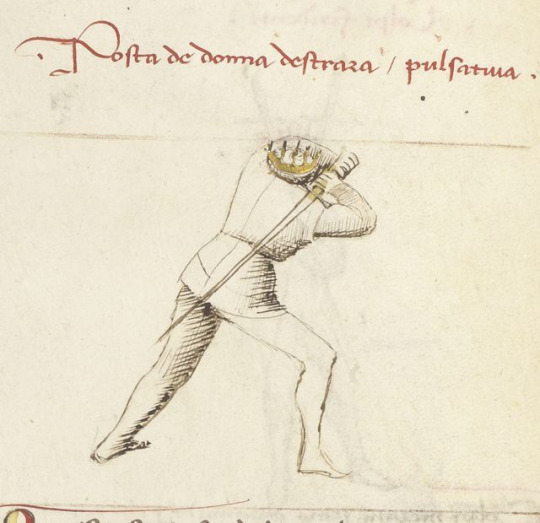 Posta de donna destraza / pulsativa .